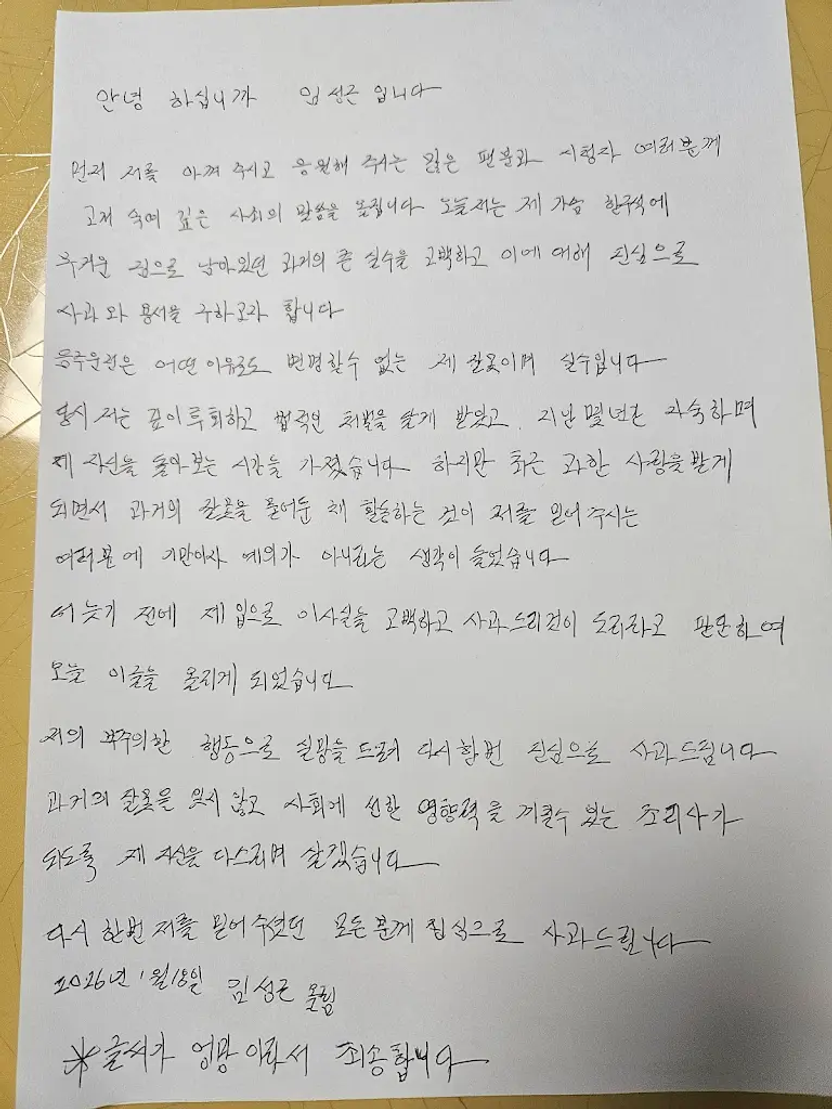 안녕 하십니까 임성근 입니다
먼저 저를 아껴 주시고 응원해 주시는 많은 팬분과 시청자 여러분께
고개 숙여 깊은 사죄의 말씀을 올립니다 오늘 저는 제 가슴 한구석에
무거운 짐으로 남아있던 과거의 큰 실수을 고백하고 이에 대해 진심으로
사과와 용서을 구하고자 합니다
음주운전은 어떤이유로도 변명할수 없는 제 잘못이며 실수입니다
당시 저는 깊이 후회하고 법적인 처벌을 달게 받았고, 지난 몇년간 자숙하며
제 자신을 돌아보는 시간을 가졌습니다 하지만 최근 과한 사랑을 받게
되면서 과거의 잘못을 묻어둔 채 활동하는 것이 저를 믿어 주시는
여러분에 기만이자 예의가 아니라는 생각이 들었습니다
더 늦기 전에 제 입으로 이사실을 고백하고 사과드리것이 도리라고 판단하여
오늘 이글을 올리게 되었습니다
저의 부주의한 행동으로 실망을 드려 다시한번 진심으로 사과드립니다
과거의 잘못을 잊지 않고 사회에 선한 영향력을 끼칠수 있는 조리사가
되도록 제 자신을 다스리며 살겠습니다
다시 한번 저를 믿어주셨던 모든분께 진심으로 사과드립니다
2026년 1월18일 임성근 올림
※글씨가 엉망이라서 죄송합니다